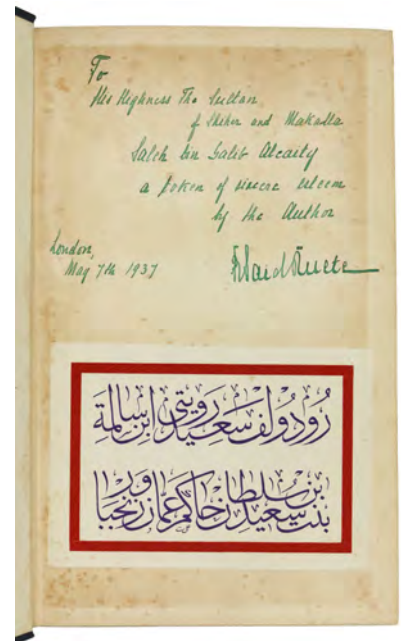 To
His Highness The Sultan
of Shihr and Makalla
Saleh bin Galib Alcaity
a token of sincere esteem
by the Author
London,
May 7th 1937
RSaidRuete
رُودُولف سَعِيد رُويتي ابن سَالِمَة
بنت سَعِيد بن سُلطان حاكم عمان وزنجبار